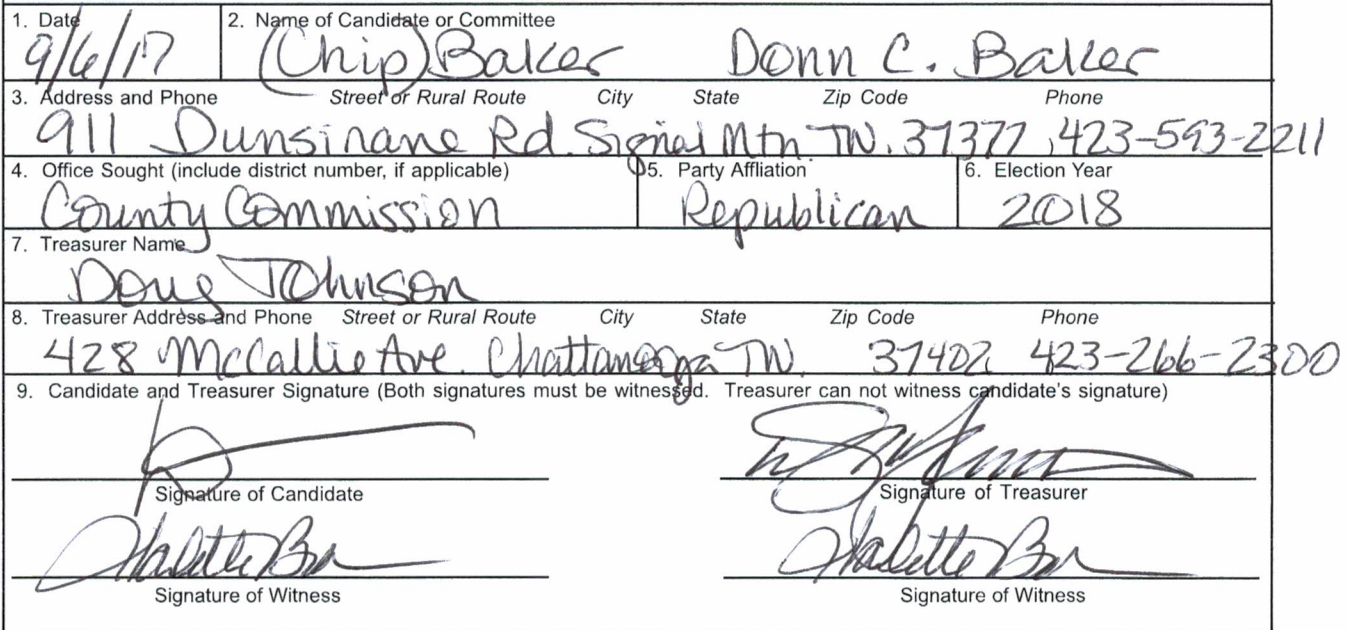 1. Date 2. Name of Candidate or Committee
9/6/17 (Chip) Baker Donn C. Baker
3. Address and Phone Street or Rural Route City State Zip Code Phone
911 Dunsinane Rd. Signal Mtn TN. 37377, 423-593-2211
4. Office Sought (include district number, if applicable) 5. Party Affliation 6. Election Year
County Commission Republican 2018
7. Treasurer Name
Doug Johnson
8. Treasurer Address and Phone Street or Rural Route City State Zip Code Phone
428 McCallie Ave. Chattanooga TN. 37402 423-266-2300
9. Candidate and Treasurer Signature (Both signatures must be witnessed. Treasurer can not witness candidate's signature)
Signature of Candidate Signature of Treasurer
Signature of Witness Signature of Witness